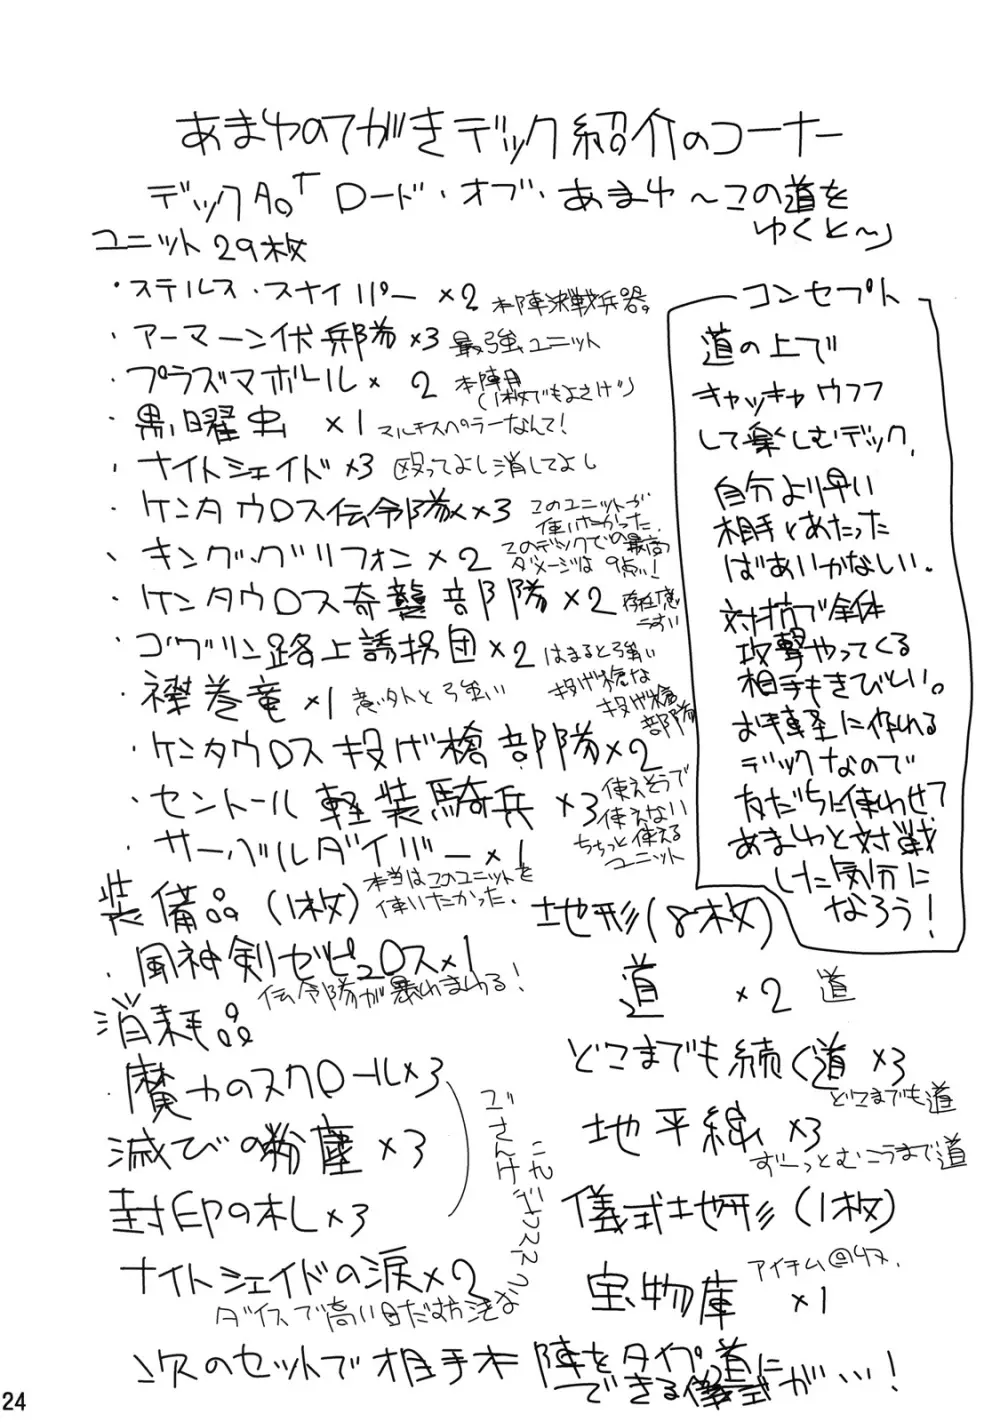 あまゆのてがきデック紹介のコーナー
デックAo「ロード・オブ・あまゆ～この道を
ゆくと～」
ユニット29枚
・ステルス・スナイパー×2 本陣決戦兵器。
・アーマーン伏兵部隊×3 最強ユニット
・プラズマボール×2 本陣用(1枚でもよさげ)
・黒曜虫 ×1 マルチスペラーなんて!
・ナイトシェイド×3 殴ってよし消してよし
・ケンタウロス伝令隊×3 このユニットが
使いたかった.
・キング・グリフォン×2 このデックでの最高
ダメージは9点!
・ケンタウロス奇襲部隊×2 存在感
うすい
・ゴブリン路上誘拐団×2 はまると強い
・襟巻竜×1 意外と強い
・ケンタウロス投げ槍部隊×2 投げ槍な
投げ槍
部隊
・セントール軽装騎兵×3 使えそうで
使えない
ちょっと使える
ユニット
・サーベルダイバー×1 本当はこのユニットを
使いたかった.
装備品(1枚)
・風神剣ゼピュロス×1
伝令隊が暴れまわる!
消耗品
・魔力のスクロール×3
滅びの粉塵×3
封印の札×3
ナイトシェイドの涙×2
ダイスで高い目だす方法な
コンセプト
道の上で
キャッキャウフフ
して楽しむデック.
自分より早い
相手とあたった
ばあいかなしい.
対抗で全体
攻撃やってくる
相手もきびしい。
お手軽に作れる
デックなので
友だちに使わせて
あまゆと対戦
した気分に
なろう!
地形(8枚)
道 ×2 道
どこまでも続く道×3
どこまでも道
地平線×3
ずーっとむこうまで道
儀式地形(1枚)
宝物庫×1
次のセットで相手本陣をタイプ:道に
できる儀式が…!
24